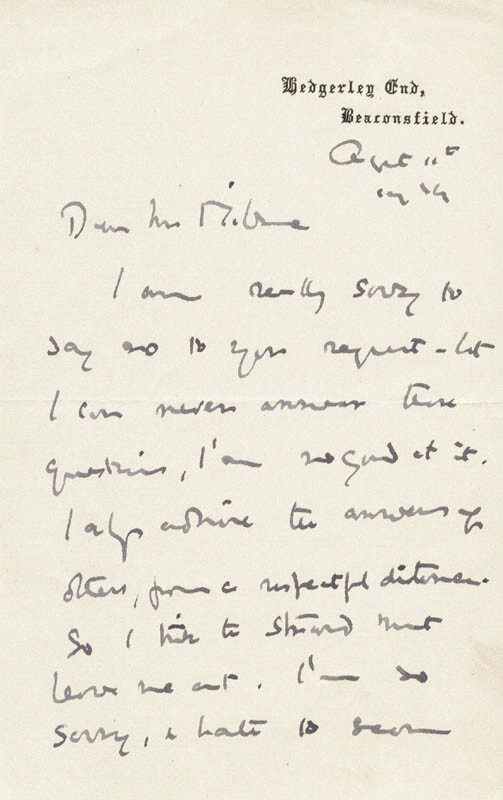 Hedgerley End,
Beaconsfield.
Dear Mr Milne
I am really sorry to
say no to your request - but
I can never answer these
questions, I'm no good at it.
I always admire the answers of
others, from a respectful distance.
So I think the Strand must
leave me out. I'm so
sorry, & hate to seem